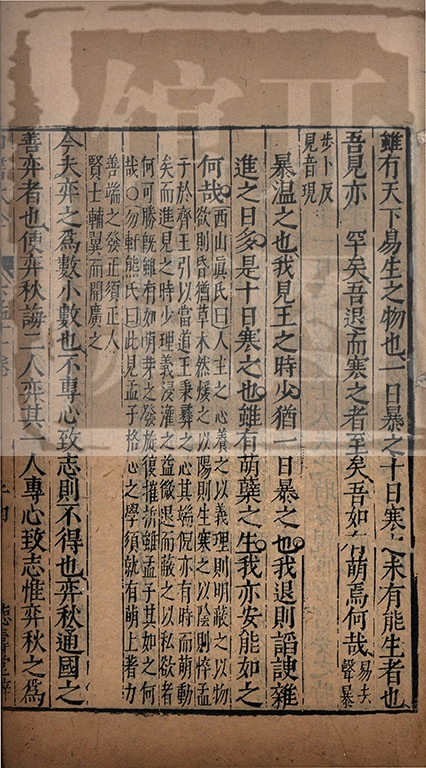 雖有天下易生之物也一日暴之十日寒之未有能生者也
吾見亦罕矣吾退而寒之者至矣吾如有萌焉何哉易去聲暴
步卜反
見音現
暴温之也我見王之時少猶一日暴之也我退則諂諛雜
進之日多是十日寒之也雖有萌蘖之生我亦安能如之
何哉西山眞氏曰人主之心養之以義理則明蔽之以物
欲則昏猶草木然煖之以陽則生寒之以陰則悴孟
子於齊王引以當道王秉彝之心其端倪亦有時而萌動
矣而進見之時少理義浸灌之益微退而蔽之以私欲者
何可勝旣雖有如萌芽之發旋復摧折雖孟子其如之何
哉○勿軒熊氏曰此見孟子格心之學須就有萌上者力
善端之發正須正人
賢士輔翼而開廣之
今夫弈之爲數小數也不專心致志則不得也弈秋通國之
善弈者也使弈秋誨二人弈其一人專心致志惟弈秋之爲